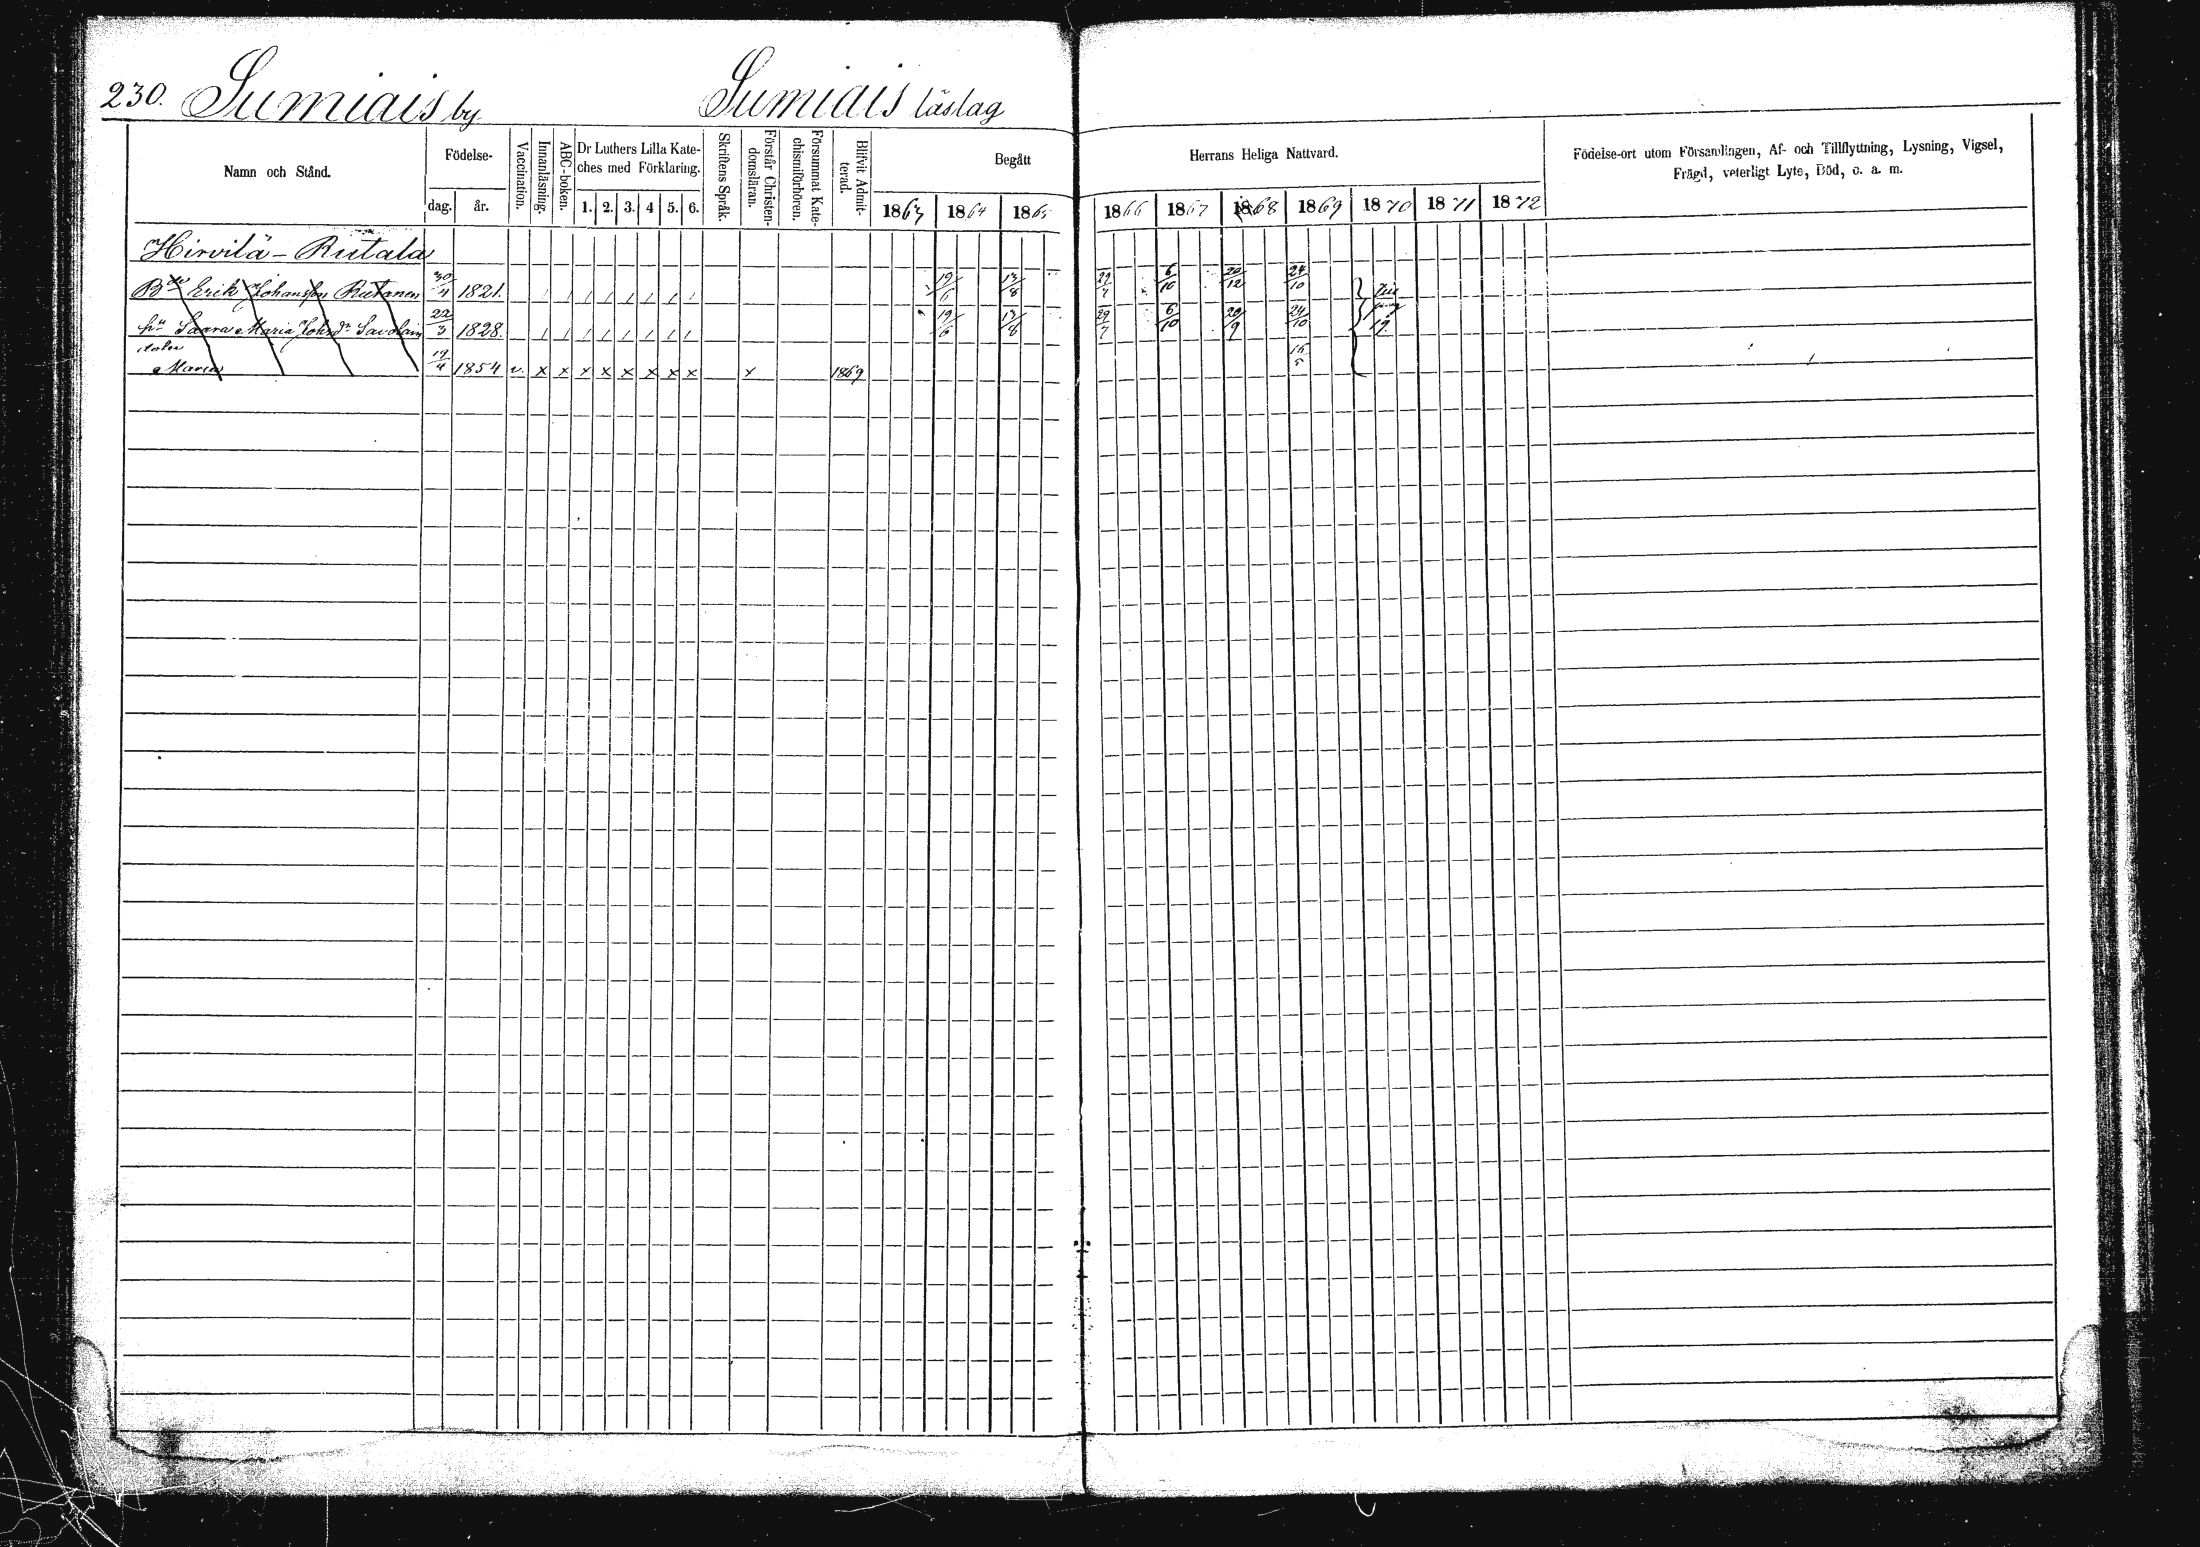 230. Sumiais by Sumiais läslag
Namn och Stånd.
Födelse-
dag. år.
Vaccination.
Innanläsning.
ABC-boken.
Dr Luthers Lilla Kate-
ches med Förklaring.
1. 2. 3. 4 5. 6.
Skriftens Språk.
Förstår Christen-
domsläran.
Försummat Kate-
chismiförhören.
Blifvit Admit-
terad.
Begått
Herrans Heliga Nattvard.
1863 1864 1865 1866 1867 1868 1869 1870 1871 1872
Födelse-ort utom Församlingen, Af- och Tillflyttning, Lysning, Vigsel,
Frägd, veterligt Lyte, Död, o. a. m.
Hirvilä - Rutala
Bde Erik Johansson Rutanen 30/4 1821. 19/6 13/8 29/7 6/10 20/12 24/10
hu Saara Maria Johsdr Savolain 22/3 1828. 19/6 13/8 29/7 6/10 20/9 24/10 12
dotr
Maria 19/4 1854 v. x x x x x x x x x 1869 16/5